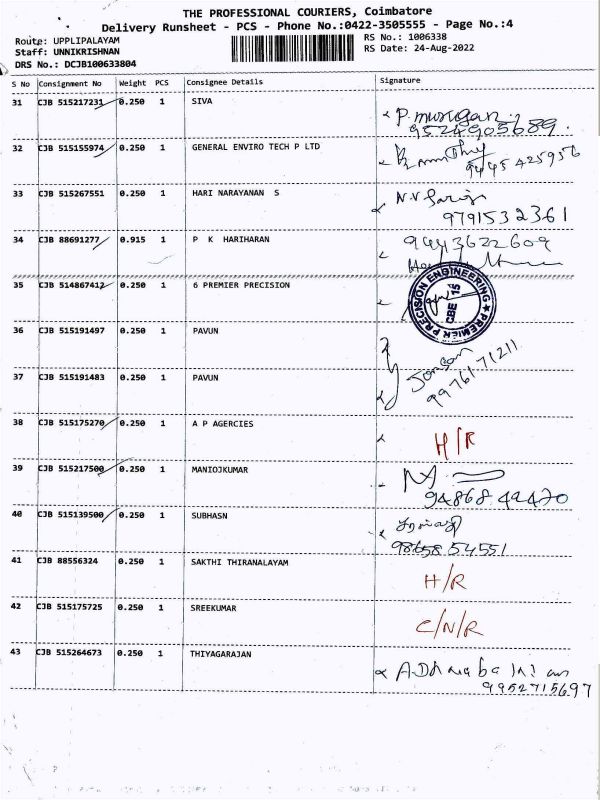 THE PROFESSIONAL COURIERS, Coimbatore
Delivery Runsheet - PCS - Phone No.:0422-3505555 - Page No.:4
Route: UPPLIPALAYAM
Staff: UNNIKRISHNAN
DRS No.: DCJB100633804
RS No.: 1006338
RS Date: 24-Aug-2022
S No Consignment No Weight PCS Consignee Details Signature
31 CJB 515217231 0.250 1 SIVA P. murugan
9524905689
32 CJB 515155974 0.250 1 GENERAL ENVIRO TECH P LTD
9445425956
33 CJB 515267551 0.250 1 HARI NARAYANAN S
9791532361
34 CJB 88691277 0.915 1 P K HARIHARAN 9443622609
35 CJB 514867412 0.250 1 6 PREMIER PRECISION
PREMIER PRECISION ENGINEERING
CBE 15
36 CJB 515191497 0.250 1 PAVUN
37 CJB 515191483 0.250 1 PAVUN
99761 71211
38 CJB 515175270 0.250 1 A P AGERCIES H/R
39 CJB 515217500 0.250 1 MANIOJKUMAR
94868 49470
40 CJB 515139500 0.250 1 SUBHASN
98658 54551
41 CJB 88556324 0.250 1 SAKTHI THIRANALAYAM H/R
42 CJB 515175725 0.250 1 SREEKUMAR C/N/R
43 CJB 515264673 0.250 1 THIYAGARAJAN
9952715697